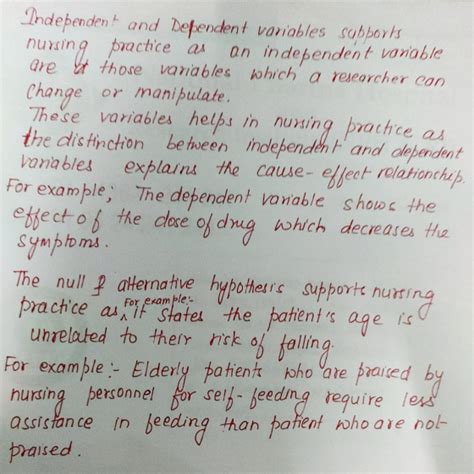 Independent and Dependent variables supports
nursing practice as an independent variable
are those variables which a researcher can
change or manipulate.
These variables helps in nursing practice as
the distinction between independent and dependent
variables explains the cause-effect relationship.
For example; The dependent variable shows the
effect of the dose of drug which decreases the
symptoms.
The null & alternative hypothesis supports nursing
practice as, For example:- it states the patient's age is
unrelated to their risk of falling.
For example:- Elderly patients who are praised by
nursing personnel for self-feeding require less
assistance in feeding than patient who are not-
praised.